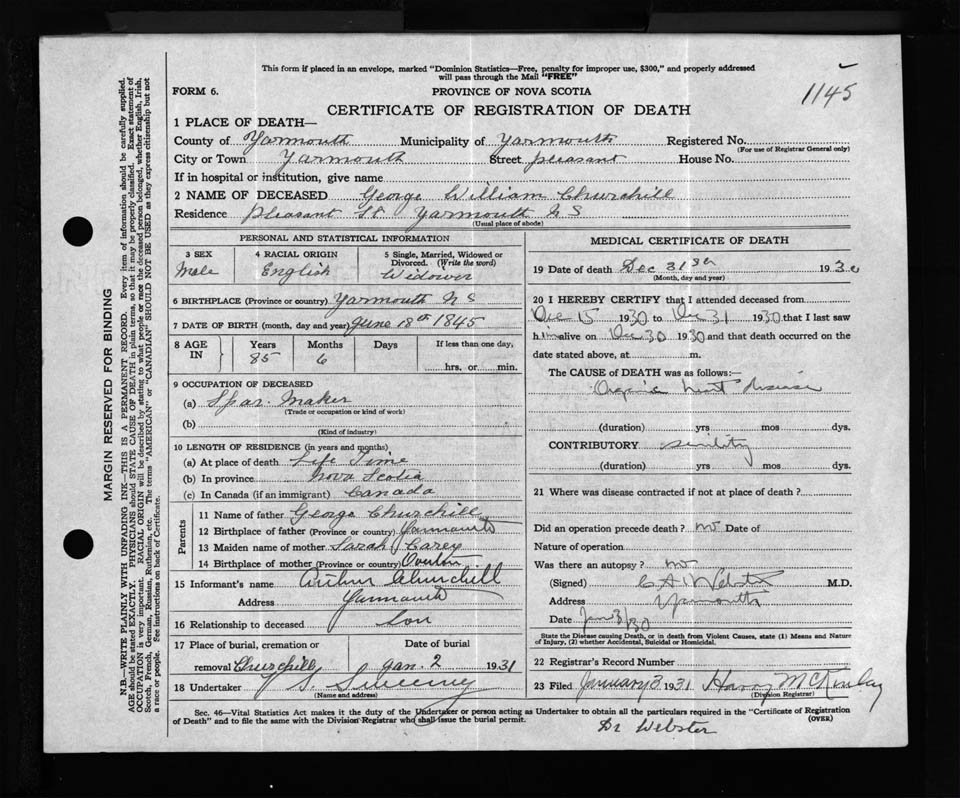 This form if placed in an envelope, marked "Dominion Statistics—Free, penalty for improper use, $300," and properly addressed
will pass through the Mail "FREE"
FORM 6.
PROVINCE OF NOVA SCOTIA
1145
CERTIFICATE OF REGISTRATION OF DEATH
1 PLACE OF DEATH—
County of Yarmouth Municipality of Yarmouth Registered No.
(For use of Registrar General only)
City or Town Yarmouth Street pleasant House No.
If in hospital or institution, give name
2 NAME OF DECEASED George William Churchill
Residence pleasant St. Yarmouth N S
(Usual place of abode)
PERSONAL AND STATISTICAL INFORMATION
3 SEX 4 RACIAL ORIGIN 5 Single, Married, Widowed or
Divorced. (Write the word)
Male English Widower
6 BIRTHPLACE (Province or country) Yarmouth N S
7 DATE OF BIRTH (month, day and year) June 18th 1845
8 AGE IN Years Months Days If less than one day,
85 6 hrs. or min.
9 OCCUPATION OF DECEASED
(a) Spar. Maker
(Trade or occupation or kind of work)
(b)
(Kind of industry)
10 LENGTH OF RESIDENCE (in years and months)
(a) At place of death Life Time
(b) In province Nova Scotia
(c) In Canada (if an immigrant) Canada
Parents
11 Name of father George Churchill
12 Birthplace of father (Province or country) Yarmouth
13 Maiden name of mother Sarah Carey
14 Birthplace of mother (Province or country)
15 Informant's name Arthur Churchill
Address Yarmouth
16 Relationship to deceased Son
17 Place of burial, cremation or Date of burial
removal Churchill Jan. 2 1931
18 Undertaker V S. Sweeney
(Name and address)
MEDICAL CERTIFICATE OF DEATH
19 Date of death Dec 31st 1930
(Month, day and year)
20 I HEREBY CERTIFY that I attended deceased from
Dec 15 1930 to Dec 31 1930 that I last saw
him alive on Dec 30 1930 and that death occurred on the
date stated above, at m.
The CAUSE of DEATH was as follows:—
Organic heart disease
(duration) yrs mos dys.
CONTRIBUTORY senility
(duration) yrs mos dys.
21 Where was disease contracted if not at place of death?
Did an operation precede death? no Date of
Nature of operation
Was there an autopsy? no
(Signed) Webster M.D.
Address Yarmouth
Date Jan 3/30
State the Disease causing Death, or in death from Violent Causes, state (1) Means and Nature
of Injury, (2) whether Accidental, Suicidal or Homicidal.
22 Registrar's Record Number
23 Filed January 3 1931 Harry McKinlay
(Division Registrar)
Sec. 46—Vital Statistics Act makes it the duty of the Undertaker or person acting as Undertaker to obtain all the particulars required in the "Certificate of Registration
of Death" and to file the same with the Division Registrar who shall issue the burial permit.
(OVER)
Dr Webster
MARGIN RESERVED FOR BINDING
N.B.—WRITE PLAINLY WITH UNFADING INK—THIS IS A PERMANENT RECORD. Every item of information should be carefully supplied.
AGE should be stated EXACTLY. PHYSICIANS should STATE CAUSE OF DEATH in plain terms, so that it may be properly classified. Exact statement of
OCCUPATION is very important. RACIAL ORIGIN will be described by stating to what people or race the deceased person belonged, whether English, Irish,
Scotch, French, German, Russian, Ruthenian, etc. The terms "AMERICAN" or "CANADIAN" SHOULD NOT BE USED as they express citizenship but not
a race or people. See instructions on back of Certificate.